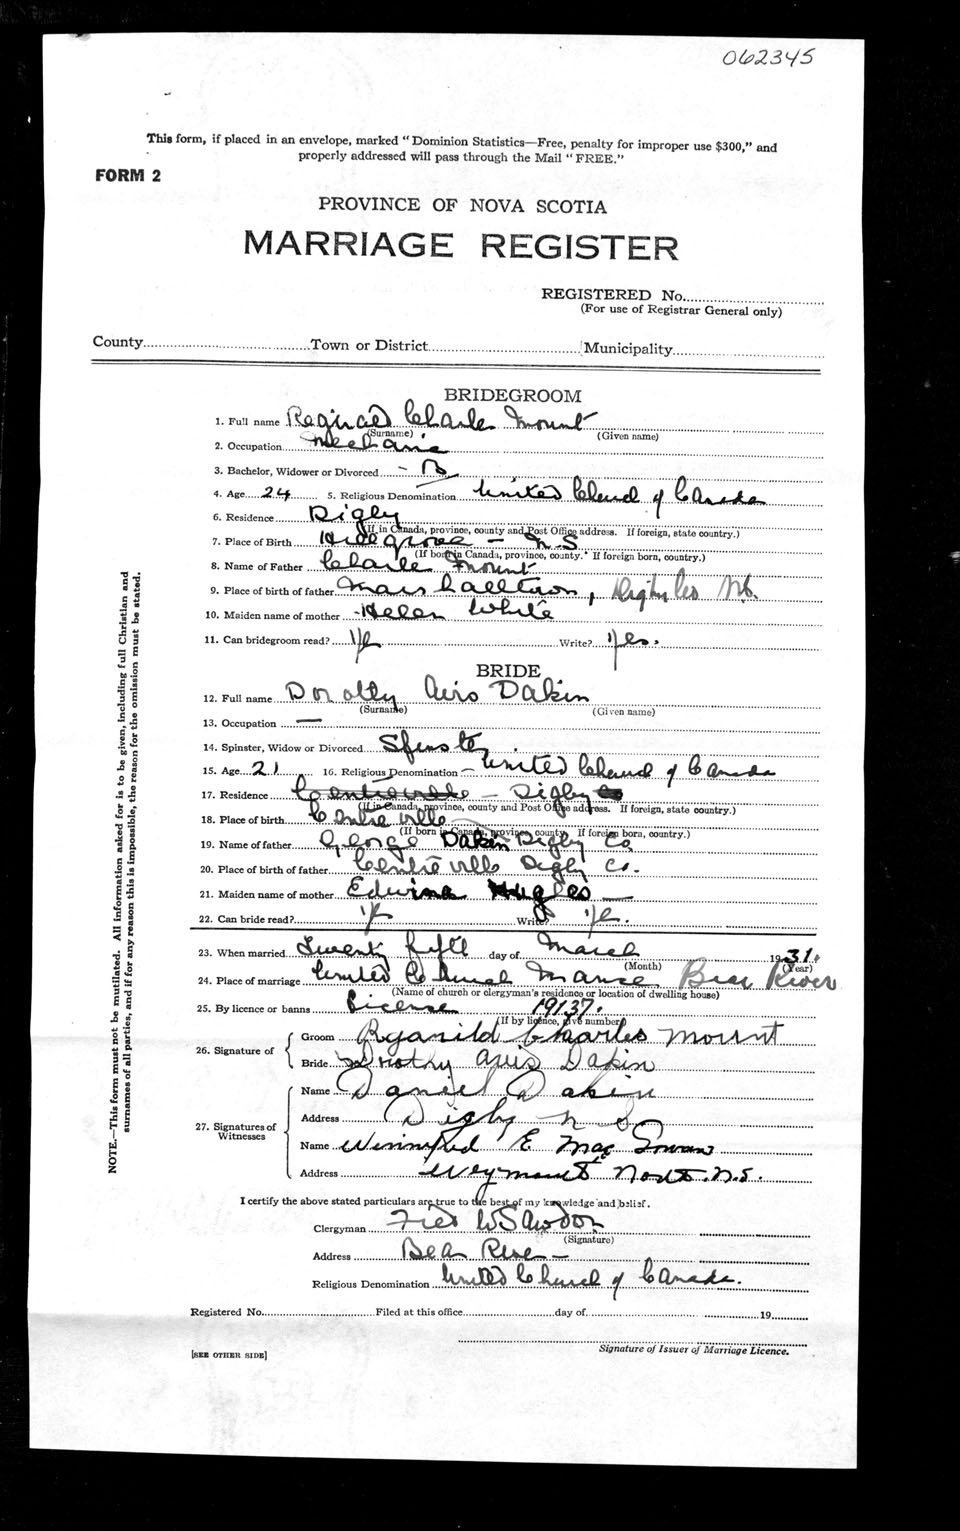 062345
This form, if placed in an envelope, marked "Dominion Statistics—Free, penalty for improper use $300," and
properly addressed will pass through the Mail "FREE."
FORM 2
PROVINCE OF NOVA SCOTIA
MARRIAGE REGISTER
REGISTERED No.
(For use of Registrar General only)
County Town or District Municipality
BRIDEGROOM
1. Full name Reginald Charles Mount
(Surname) (Given name)
2. Occupation Mechanic
3. Bachelor, Widower or Divorced – B
4. Age 24 5. Religious Denomination United Church of Canada
6. Residence Digby
(If in Canada, province, county and Post Office address. If foreign, state country.)
7. Place of Birth Hillgrove – N S
(If born in Canada, province, county. If foreign born, country.)
8. Name of Father Charles Mount
9. Place of birth of father Marshalltown, Digby Co N.S.
10. Maiden name of mother Helen White
11. Can bridegroom read? Yes Write? Yes.
BRIDE
12. Full name Dorothy Avis Dakin
(Surname) (Given name)
13. Occupation —
14. Spinster, Widow or Divorced Spinster
15. Age 21 16. Religious Denomination – United Church of Canada
17. Residence Centreville – Digby Co
(If in Canada, province, county and Post Office address. If foreign, state country.)
18. Place of birth Centreville
(If born in Canada, province, county. If foreign born, country.)
19. Name of father George Dakin Digby Co.
20. Place of birth of father Centreville Digby Co.
21. Maiden name of mother Edwina Hughes —
22. Can bride read? Yes Write? Yes.
23. When married Twenty fifth day of March 1931.
(Month) (Year)
24. Place of marriage United Church Manse Bear River
(Name of church or clergyman's residence or location of dwelling house)
25. By licence or banns License 19137.
(If by licence, give number)
26. Signature of Groom Reganild Charles Mount
Bride Dorothy Avis Dakin
27. Signatures of Witnesses Name Daniel Dakin
Address Digby N S
Name Winnifred E. MacGowan
Address Weymouth North. N.S.
I certify the above stated particulars are true to the best of my knowledge and belief.
Clergyman Fred W Sawdon
(Signature)
Address Bear River –
Religious Denomination United Church of Canada.
Registered No. Filed at this office day of 19
Signature of Issuer of Marriage Licence.
[SEE OTHER SIDE]
NOTE.—This form must not be mutilated. All information asked for is to be given, including full Christian and
surnames of all parties, and if for any reason this is impossible, the reason for the omission must be stated.